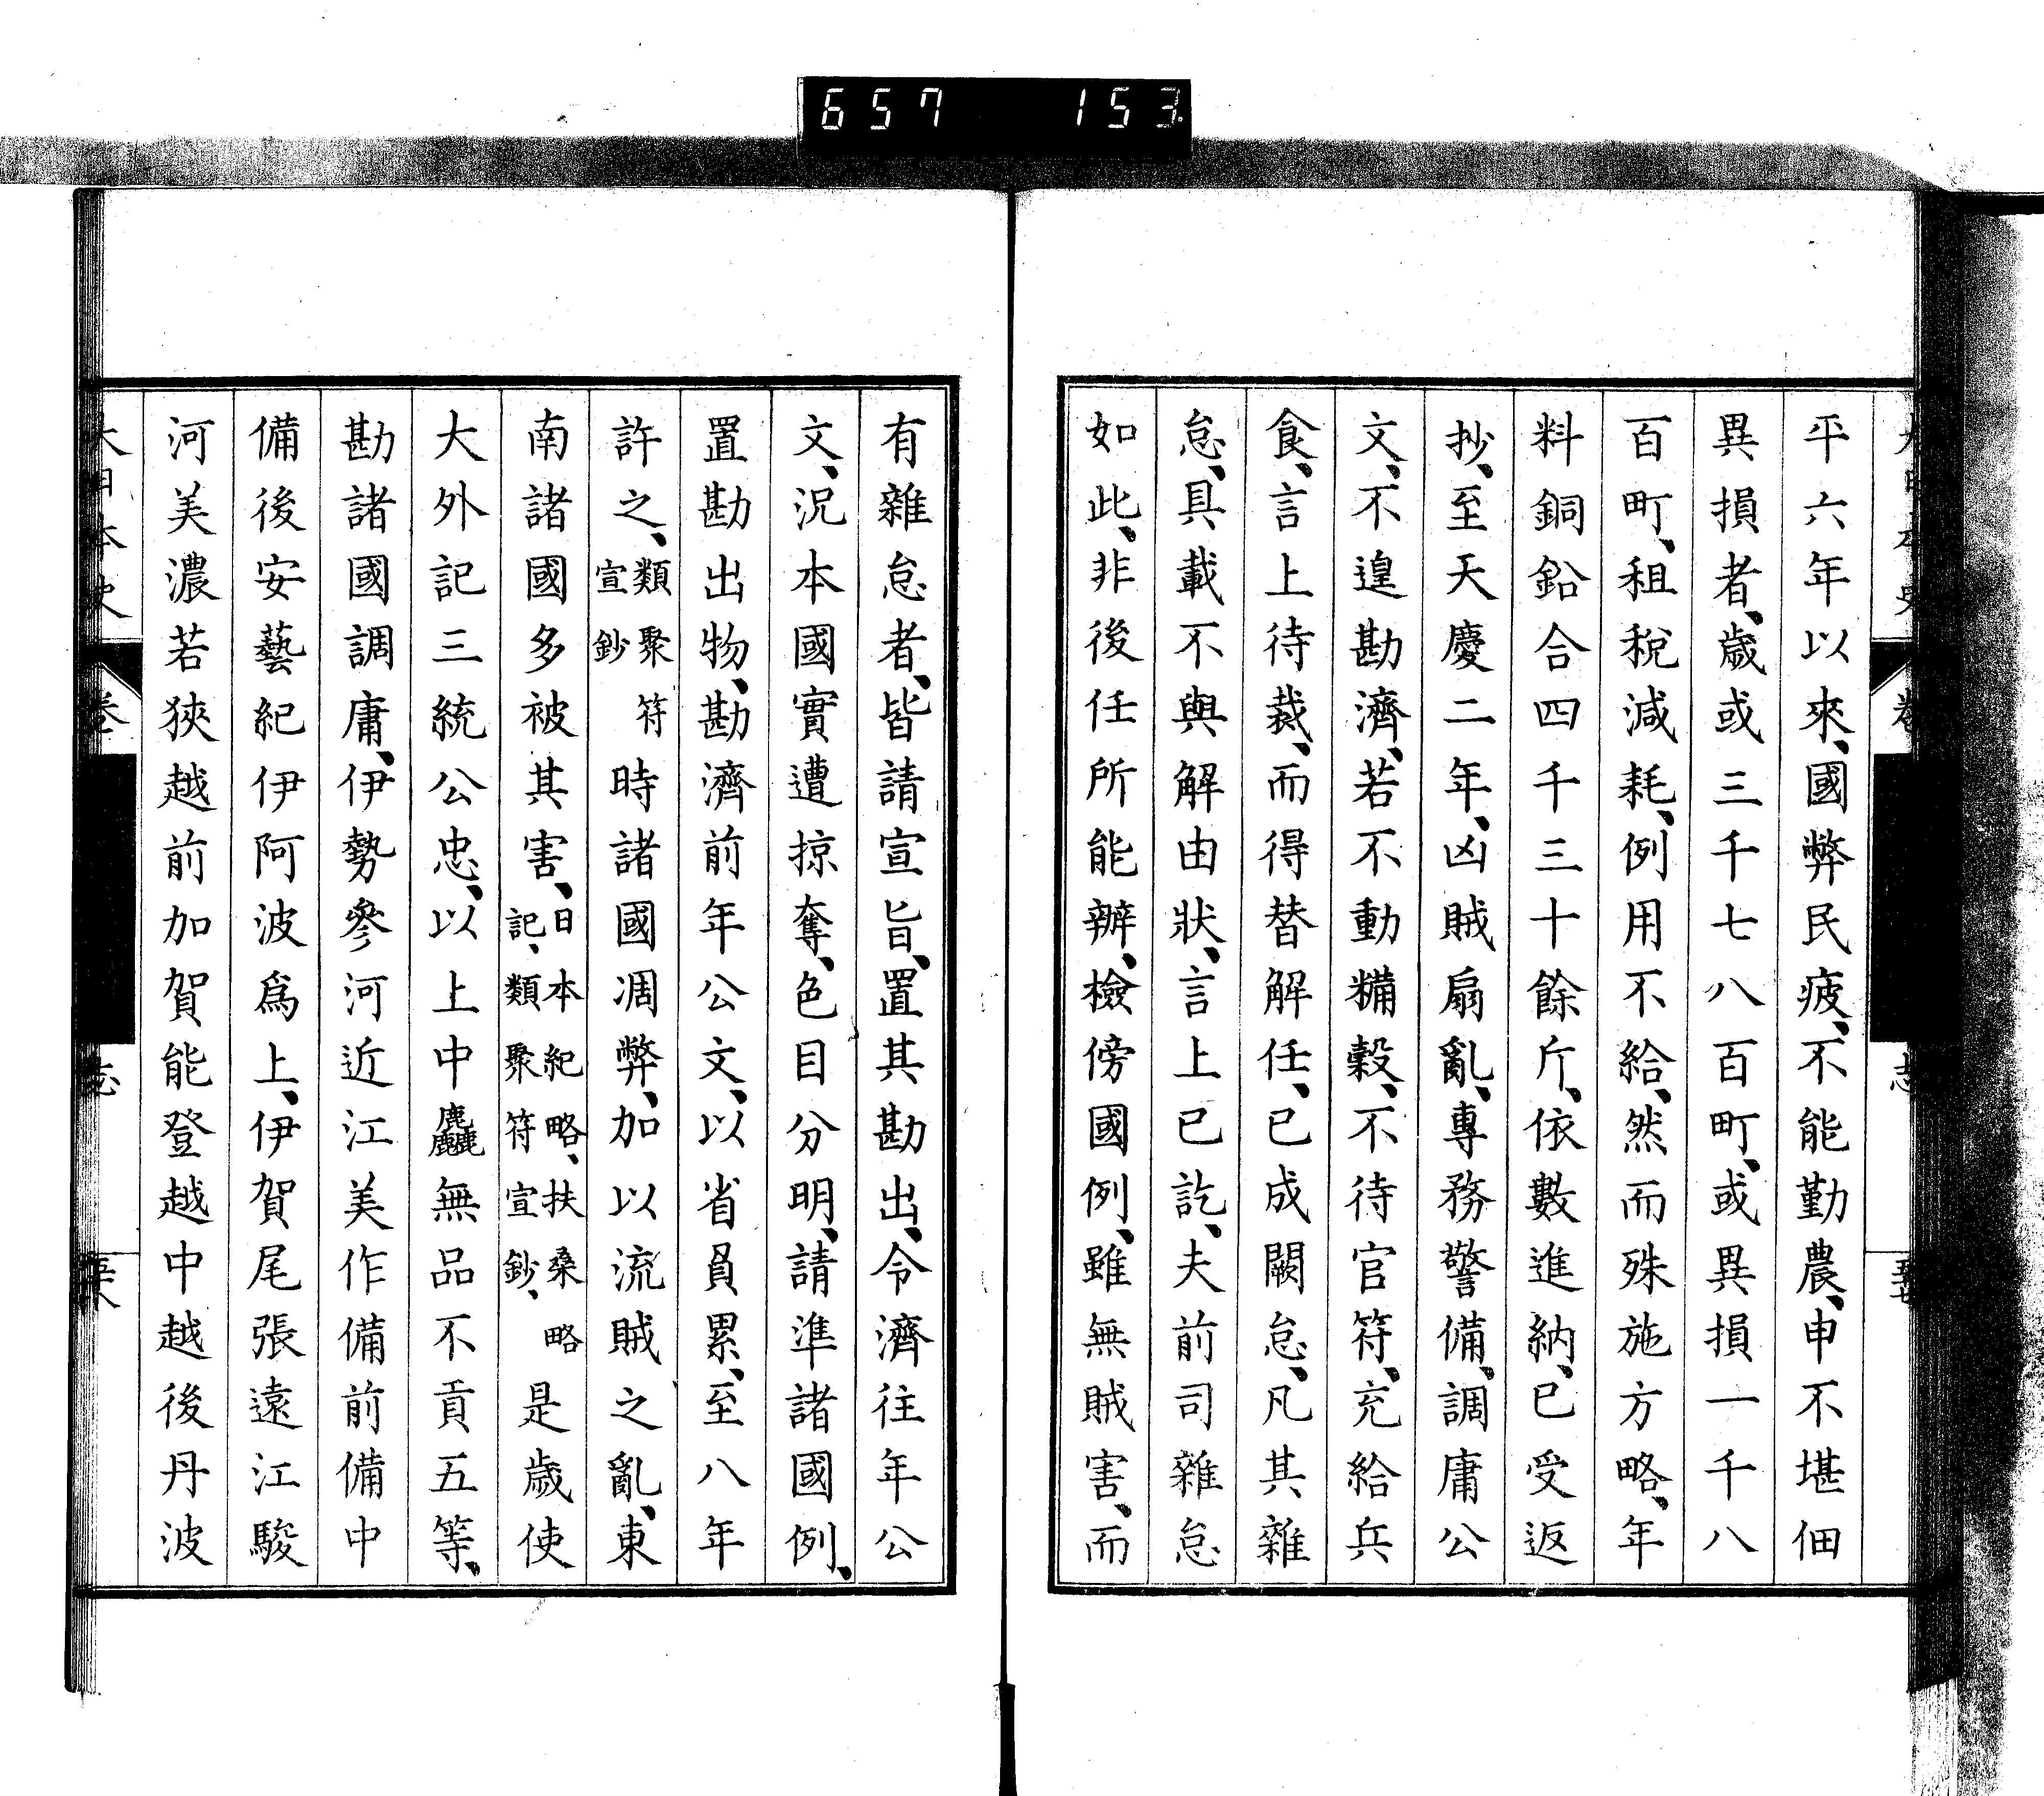 657 153
平六年以來、國弊民疲、不能勤農、申不堪佃
異損者、歲或三千七八百町、或異損一千八
百町、租稅減耗、例用不給、然而殊施方略、年
料銅鉛合四千三十餘斤、依數進納、已受返
抄、至天慶二年、凶賊扇亂、專務警備、調庸公
文、不遑勘濟、若不動糒穀、不待官符、充給兵
食、言上待裁、而得替解任、已成闕怠、凡其雜
怠、具載不與解由狀、言上已訖、夫前司雜怠
如此、非後任所能辨、檢傍國例、雖無賊害、而
有雜怠者、皆請宣旨、置其勘出、令濟往年公
文、況本國實遭掠奪、色目分明、請準諸國例、
置勘出物、勘濟前年公文、以省負累、至八年
許之、類聚符宣鈔時諸國凋弊、加以流賊之亂、東
南諸國多被其害、日本紀略、扶桑略記、類聚符宣鈔、是歲使
大外記三統公忠、以上中麤無品不貢五等、
勘諸國調庸、伊勢參河近江美作備前備中
備後安藝紀伊阿波爲上、伊賀尾張遠江駿
河美濃若狹越前加賀能登越中越後丹波
大日本史 卷 志 五十八